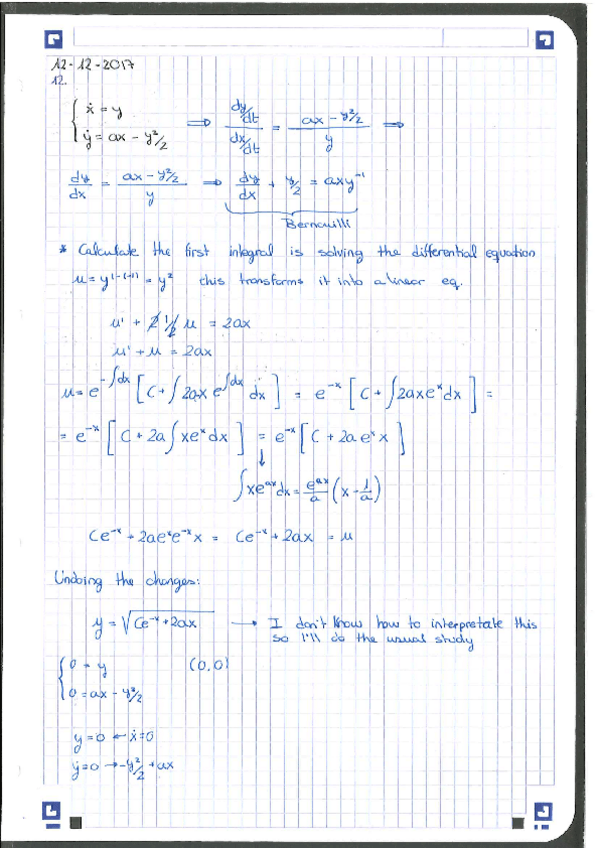 12-12-2017
12.
{ ẋ = y
ẏ = ax - y²/2 ⟹ dy/dt / dx/dt = (ax - y²/2) / y ⟹
dy/dx = (ax - y²/2) / y ⟹ dy/dx + y/2 = axy⁻¹
Bernouilli
* Calculate the first integral is solving the differential equation
u = y^(1-(-1)) = y² this transforms it into a linear eq.
u' + 2 1/2 u = 2ax
u' + u = 2ax
u = e^(-∫dx) [C + ∫2ax e^(∫dx) dx] = e^(-x) [C + ∫2axe^x dx] =
= e^(-x) [C + 2a ∫xe^x dx] = e^(-x) [C + 2ae^x x]
↓
∫xe^(ax) dx = e^(ax)/a (x - 1/a)
Ce^(-x) + 2ae^x e^(-x) x = Ce^(-x) + 2ax = u
Undoing the changes:
y = √(Ce^(-x) + 2ax) → I don't know how to interpretate this
so I'll do the usual study
{ 0 = y (0,0)
0 = ax - y²/2
y = 0 ← ẋ = 0
ẏ = 0 → -y²/2 + ax